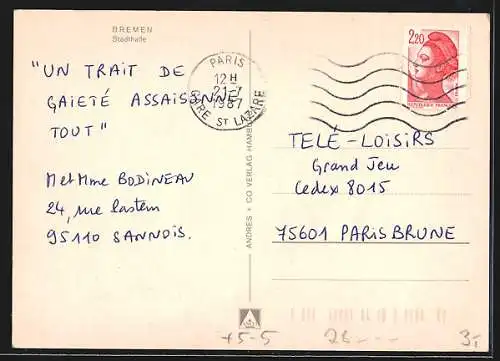 BREMEN
Stadthalle
"UN TRAIT DE
GAIETÉ ASSAISONNE
TOUT"
M et Mme BODINEAU
24, rue Pasteur
95110 SANNOIS.
PARIS
12 H
21-7
1987
GARE ST LAZARE
2,20
RÉPUBLIQUE FRANÇAISE
TELÉ-LOISIRS
Grand Jeu
Cedex 8015
75601 PARIS BRUNE
ANDRES + CO VERLAG HAMBURG
+5-5
26 - - -
3,-